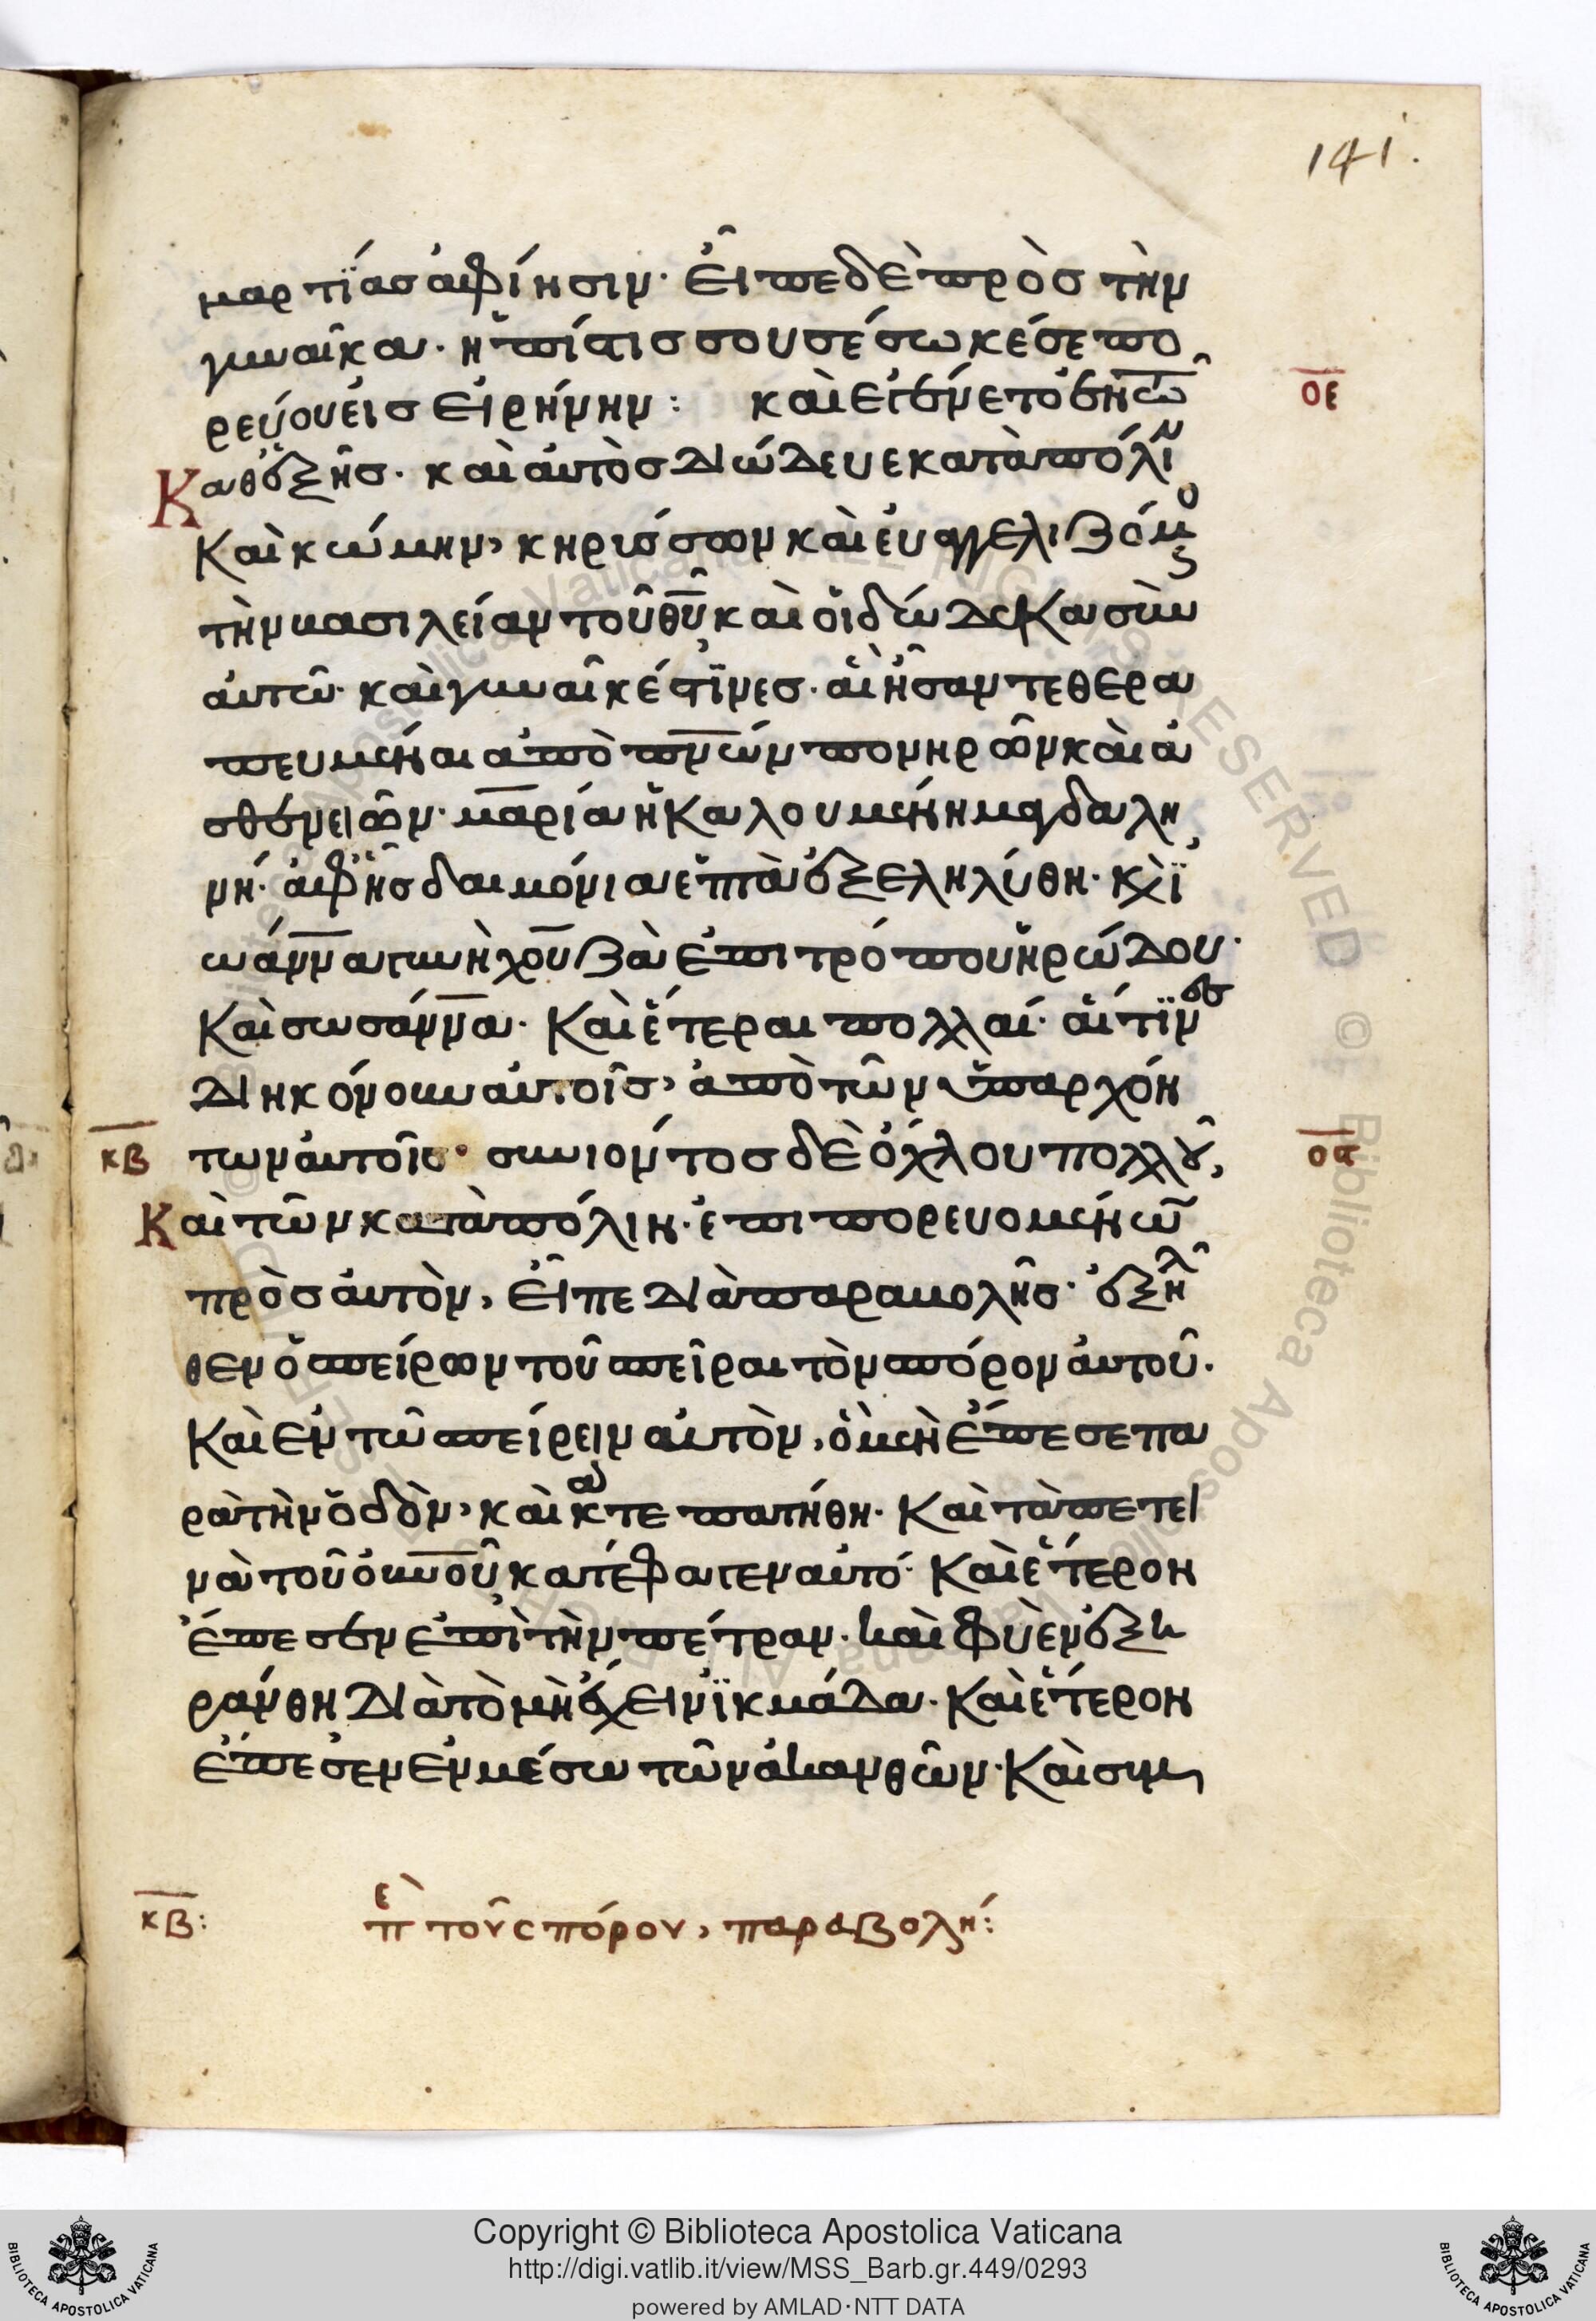 141.
μαρτϊάσ ἀφίησιν· εἶπε δὲ πρὸσ τὴν
γυναῖκα· ἡ πίστισ σου σέσωκέ σε πο
ρεύου εἰσ εἰρήνην: καὶ ἐγένετο ἐν τῶ
οε
Καθεξῆσ· καὶ αὐτὸσ διώδευε κατὰ πόλιν
Καὶ κώμην, κηρύσσων καὶ εὐαγγελιζόμενος
τὴν βασιλείαν τοῦ θυ καὶ οἱ δώδεκα σὺν
αὐτῶ· καὶ γυναῖκέσ τϊνεσ· αἳ ἦσαν τεθερα
πευμέναι ἀπὸ πνων πονηρῶν καὶ ἀ
σθενειῶν· μαρία ἡ Καλουμένη μαγδαλη
νή· ἀφ' ἧσ δαιμόνια ἑπτὰ ἐξεληλύθη· καὶ ϊ
ωάννα γυνὴ χουζᾶ ἐπιτρόπου ἡρώδου·
Καὶ σωσάννα· Καὶ ἕτεραι πολλαί· αἵτϊνεσ
διηκόνουν αὐτοῖσ, ἀπὸ τῶν ὑπαρχόν
κβ
των αὐτοῖσ· συνιόντοσ δὲ ὄχλου πολλοῦ,
οϛ
Καὶ τῶν κατὰ πόλιν· ἐπιπορευομένων
πρὸσ αὐτὸν, εἶπε διὰ παραβολῆσ· ἐξῆλ
θεν ὁ σπείρων τοῦ σπεῖραι τὸν σπόρον αὐτοῦ·
Καὶ ἐν τῶ σπείρειν αὐτὸν, ὃ μὲν ἔπεσε πα
ρὰ τὴν ὁδὸν, καὶ κατεπατήθη· Καὶ τὰ πετει
νὰ τοῦ οὐνοῦ κατέφαγεν αὐτό· Καὶ ἕτερον
ἔπεσεν ἐπὶ τὴν πέτραν· καὶ φυὲν ἐξη
ράνθη διὰ τὸ μὴ ἔχειν ϊκμάδα· Καὶ ἕτερον
ἔπεσεν ἐν μέσω τῶν ἀκανθῶν· Καὶ συμ
κβ: πε τοῦ σπόρου, παραβολή:
Copyright © Biblioteca Apostolica Vaticana
http://digi.vatlib.it/view/MSS_Barb.gr.449/0293
powered by AMLAD·NTT DATA
BIBLIOTECA APOSTOLICA VATICANA
BIBLIOTECA APOSTOLICA VATICANA